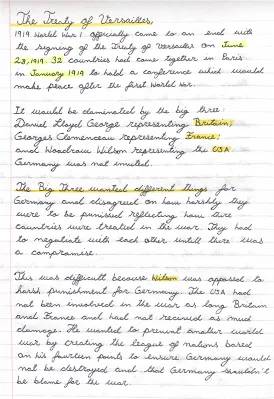 The Treaty of Versailles,
1919 World War 1 officially came to an end with
the signing of the Treaty of Versailles on June
28, 1919. 32 countries had come together in Paris
in January 1919 to hold a conference which would
make peace after the first World War.
It would be dominated by the big three:
Daniel Lloyd George representing Britain;
Georges Clemenceau representing France;
and Woodrow Wilson representing the USA
Germany was not invited.
The Big Three wanted different things for
Germany and disagreed on how harshly they
were to be punished reflecting how there
countries were treated in the war. They had
to negotiate with each other until there was
a compromise.
This was difficult because Wilson was opposed to
harsh punishment for Germany. The USA had
not been involved in the war as long Britain
and France and had not received as much
damage. He wanted to prevent another world
war by creating the league of nations based
on his fourteen points to ensure Germany would
not be destroyed and that Germany shouldn't
be blame for the war.